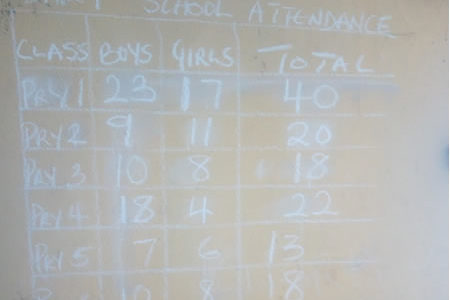 SCHOOL ATTENDANCE
CLASS BOYS GIRLS TOTAL
PRY 1 23 17 40
PRY 2 9 11 20
PRY 3 10 8 18
PRY 4 18 4 22
PRY 5 7 6 13
8 18